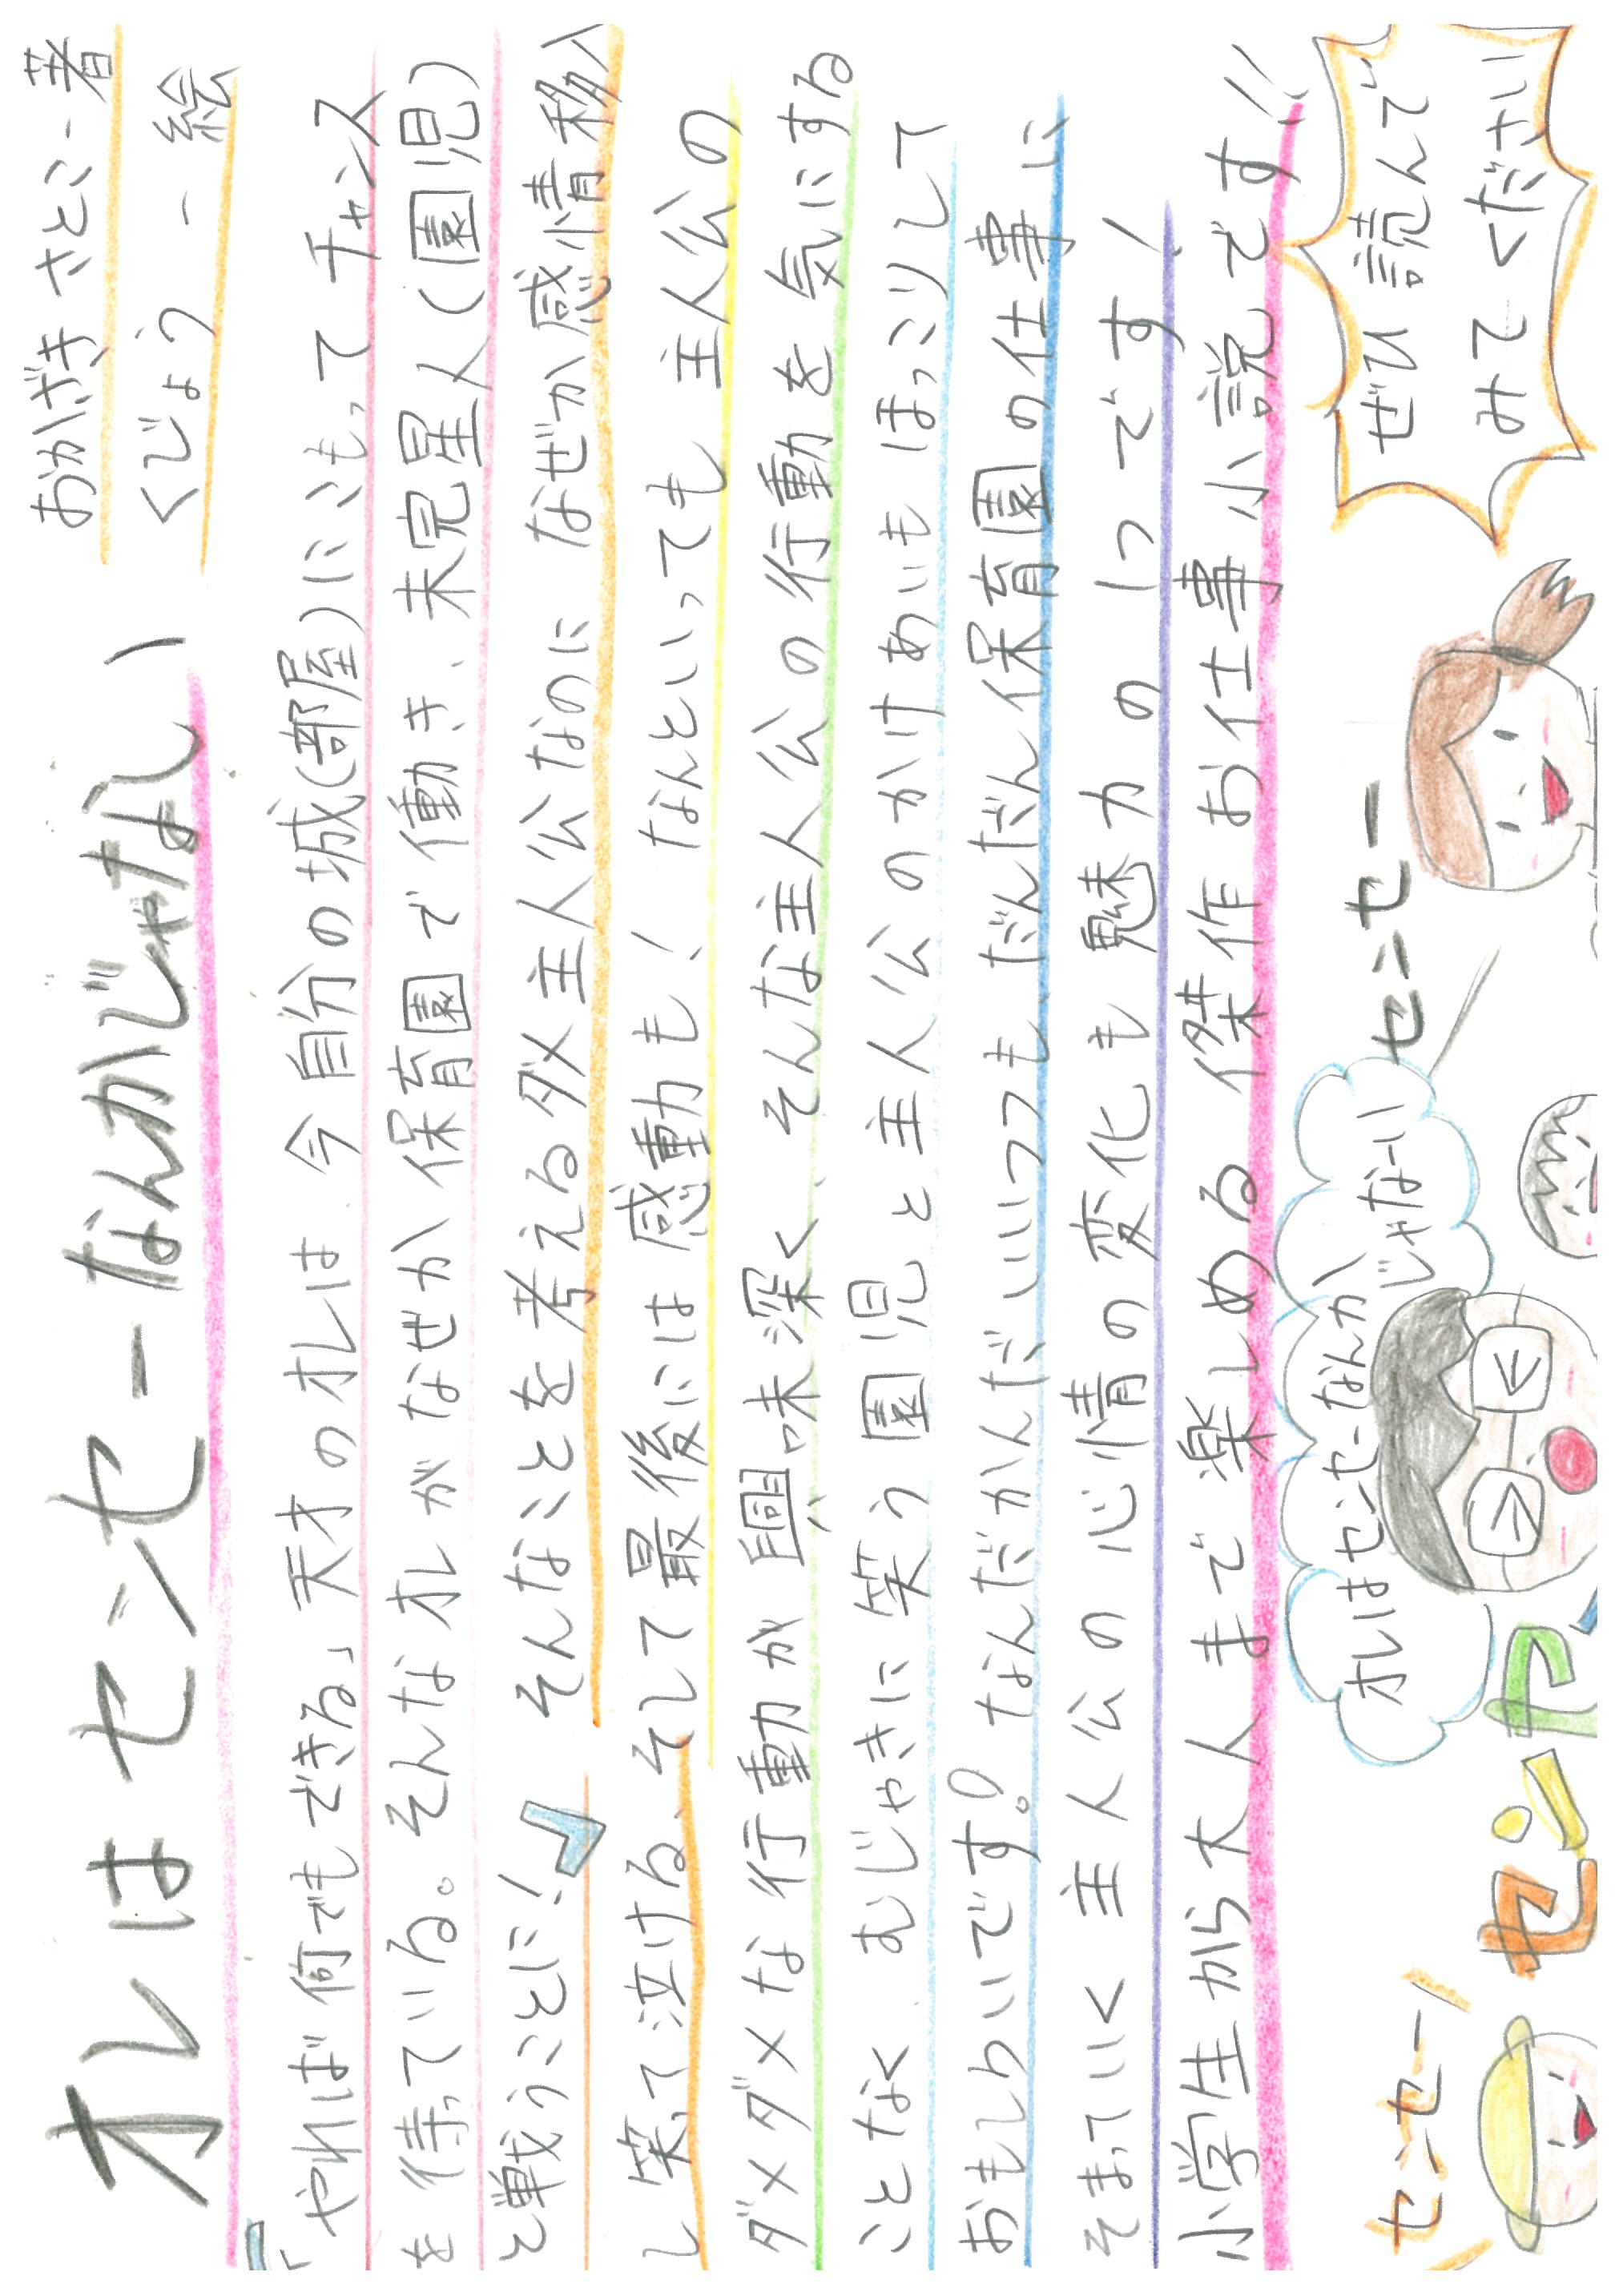 オレはセンセーなんかじゃない
おかざき さとこ-著
くじょう -絵
「やれば何でもできる」天才のオレは今自分の城(部屋)にこもってチャンス
を待っている。そんなオレがなぜか保育園で働き、未完星人(園児)
と戦うことに!」そんなことを考えるダメ主人公なのになぜか感情移入
し笑って泣ける、そして最後には感動も!なんといっても主人公の
ダメダメな行動が興味深く、そんな主人公の行動を気にする
ことなく、むじゃきに笑う園児と主人公のかけあいもほっこりして
おもしろいです!なんだかんだいいつつも、だんだん保育園の仕事に
そまっていく主人公の心情の変化も魅力の1つです!
小学生から大人まで楽しめる傑作お仕事小説です!!
センセー
センセ
オレはセンセーなんか
じゃなーい
センセー
ぜひ読んで
みてください